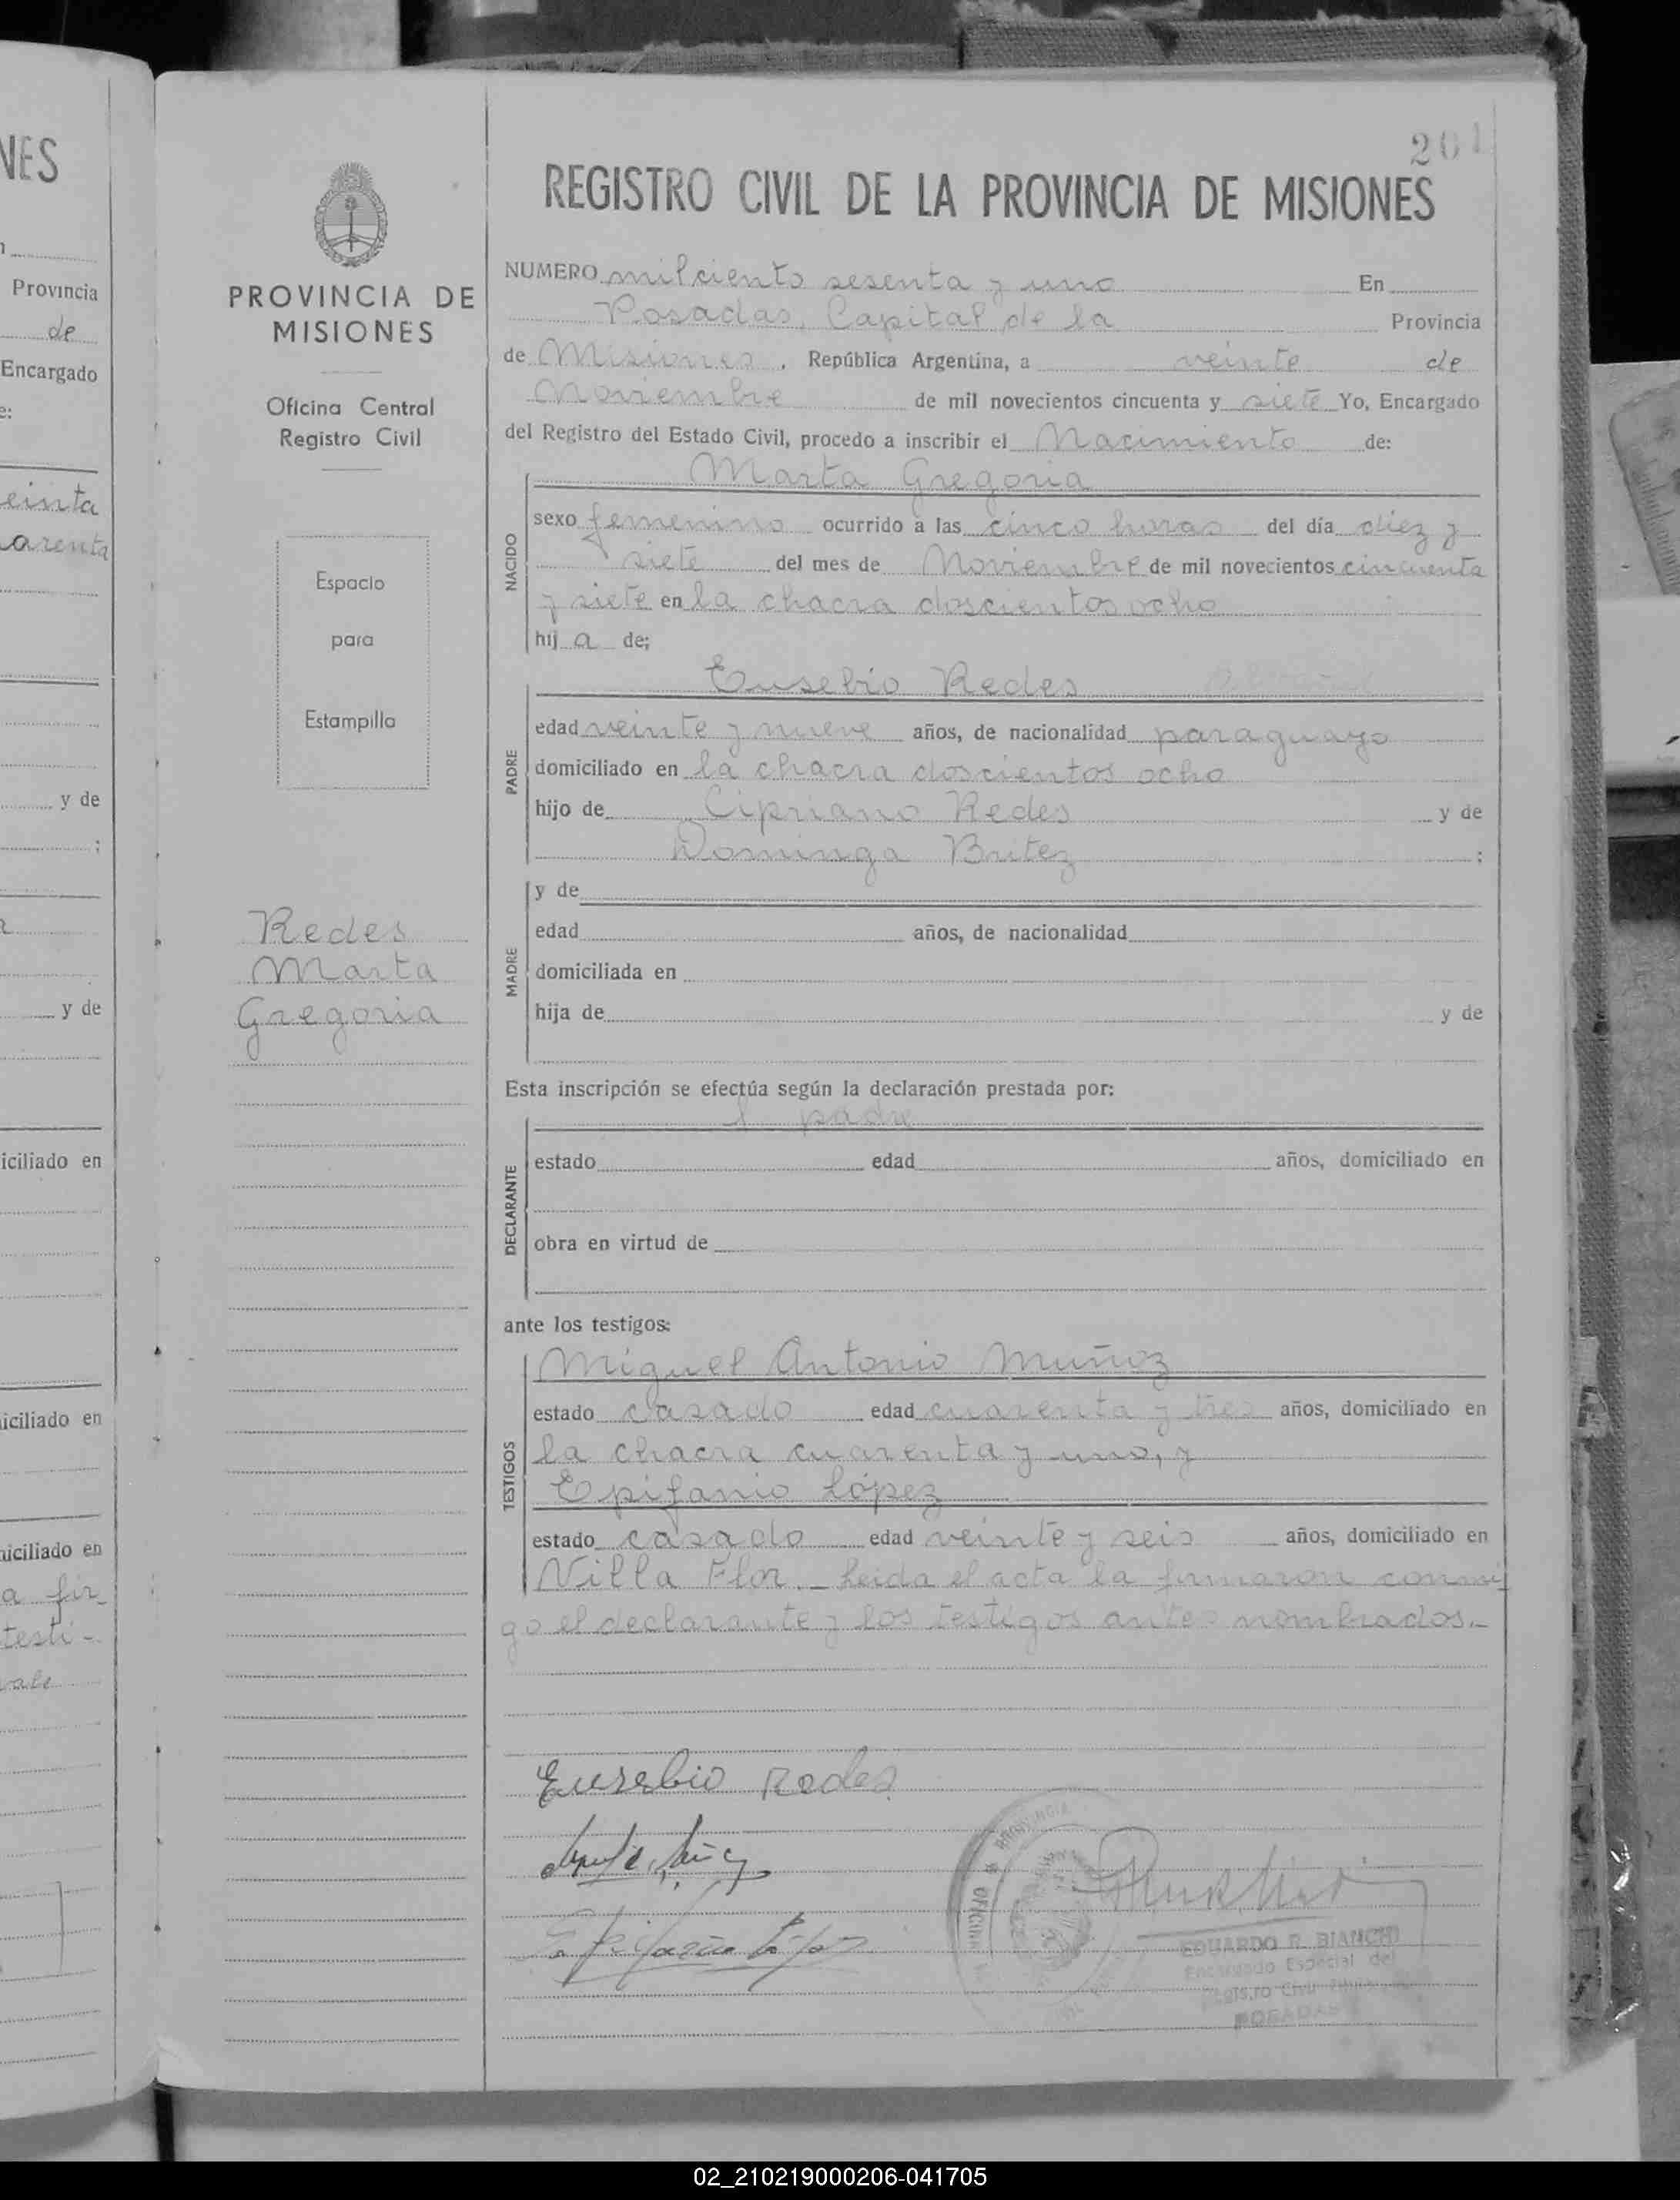 NES
Provincia
de
Encargado
e:
einta
arenta
y de
;
y de
iciliado en
iciliado en
iciliado en
a fir-
testi-
vale
PROVINCIA DE
MISIONES
Oficina Central
Registro Civil
Espacio
para
Estampilla
Redes
Marta
Gregoria
201
REGISTRO CIVIL DE LA PROVINCIA DE MISIONES
NUMERO milciento sesenta y uno En
Posadas, Capital de la Provincia
de Misiones, República Argentina, a veinte de
Noviembre de mil novecientos cincuenta y siete Yo, Encargado
del Registro del Estado Civil, procedo a inscribir el Nacimiento de:
NACIDO
Marta Gregoria
sexo femenino ocurrido a las cinco horas del día diez y
siete del mes de Noviembre de mil novecientos cincuenta
y siete en la chacra doscientos ocho
hij a de;
PADRE
Eusebio Redes
edad veinte y nueve años, de nacionalidad paraguayo
domiciliado en la chacra doscientos ocho
hijo de Cipriano Redes y de
Dominga Britez ;
MADRE
y de
edad años, de nacionalidad
domiciliada en
hija de y de
Esta inscripción se efectúa según la declaración prestada por:
DECLARANTE
l padre
estado edad años, domiciliado en
obra en virtud de
ante los testigos:
TESTIGOS
Miguel Antonio Muñoz
estado casado edad cuarenta y tres años, domiciliado en
la chacra cuarenta y uno, y
Epifanio López
estado casado edad veinte y seis años, domiciliado en
Villa Flor.- Leida el acta la firmaron conmi
go el declarante y los testigos antes nombrados.-
Eusebio Redes
Epifanio López
PROVINCIA
OFICINA
EDUARDO R. BIANCHI
Encargado Especial del
Registro Civil
POSADAS
02_210219000206-041705